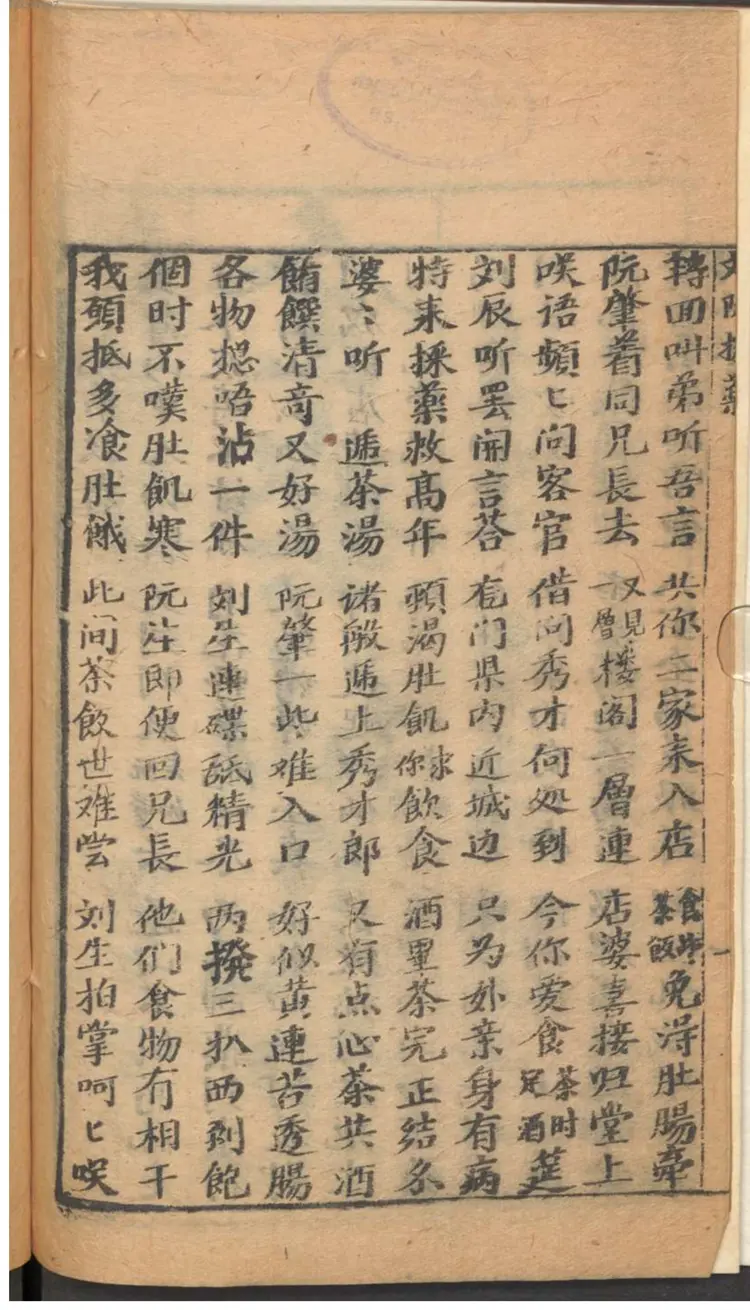 刘阮採藥
轉回叫弟听吾言 共你二家来入店 食些茶飯免淂肚腸牽
阮肇着同兄長去 又見一層楼阁一層連 店婆喜接归堂上
咲语頻〻问客官 借问秀才何处到 今你爱食茶时定酒筵
刘辰听罢開言荅 危门県内近城边 只为外亲身有病
特来採藥救高年 頸渴肚飢求你飲食 酒里茶完正结多
婆〻听 遞茶湯 诸般遞上秀才郎 又有点心茶共酒
餚饌清竒又好湯 阮肇一些难入口 好似黄連苦透腸
各物揔唔沾一件 刘生連碟舐精光 两撥三扒西到飽
個时不嘆肚飢寒 阮生即便回兄長 他们食物有相干
我頭抵多飡肚餓 此间茶飲世难尝 刘生拍掌呵〻咲